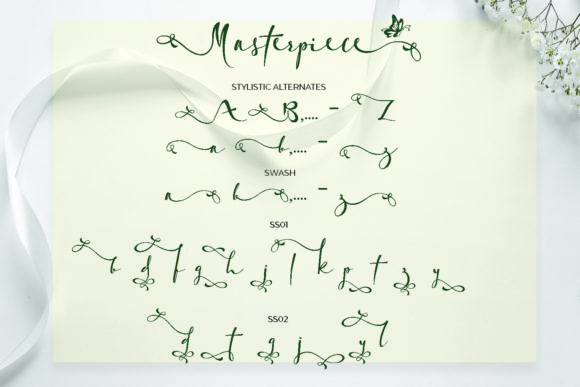 Masterpiece
STYLISTIC ALTERNATES
A B,.... - Z
a b,.... - z
SWASH
a b,.... - z
SS01
d f g h j l k p t z y
SS02
d t g j y l